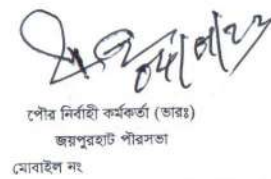 পৌর নির্বাহী কর্মকর্তা (ভারঃ)
জয়পুরহাট পৌরসভা
মোবাইল নং